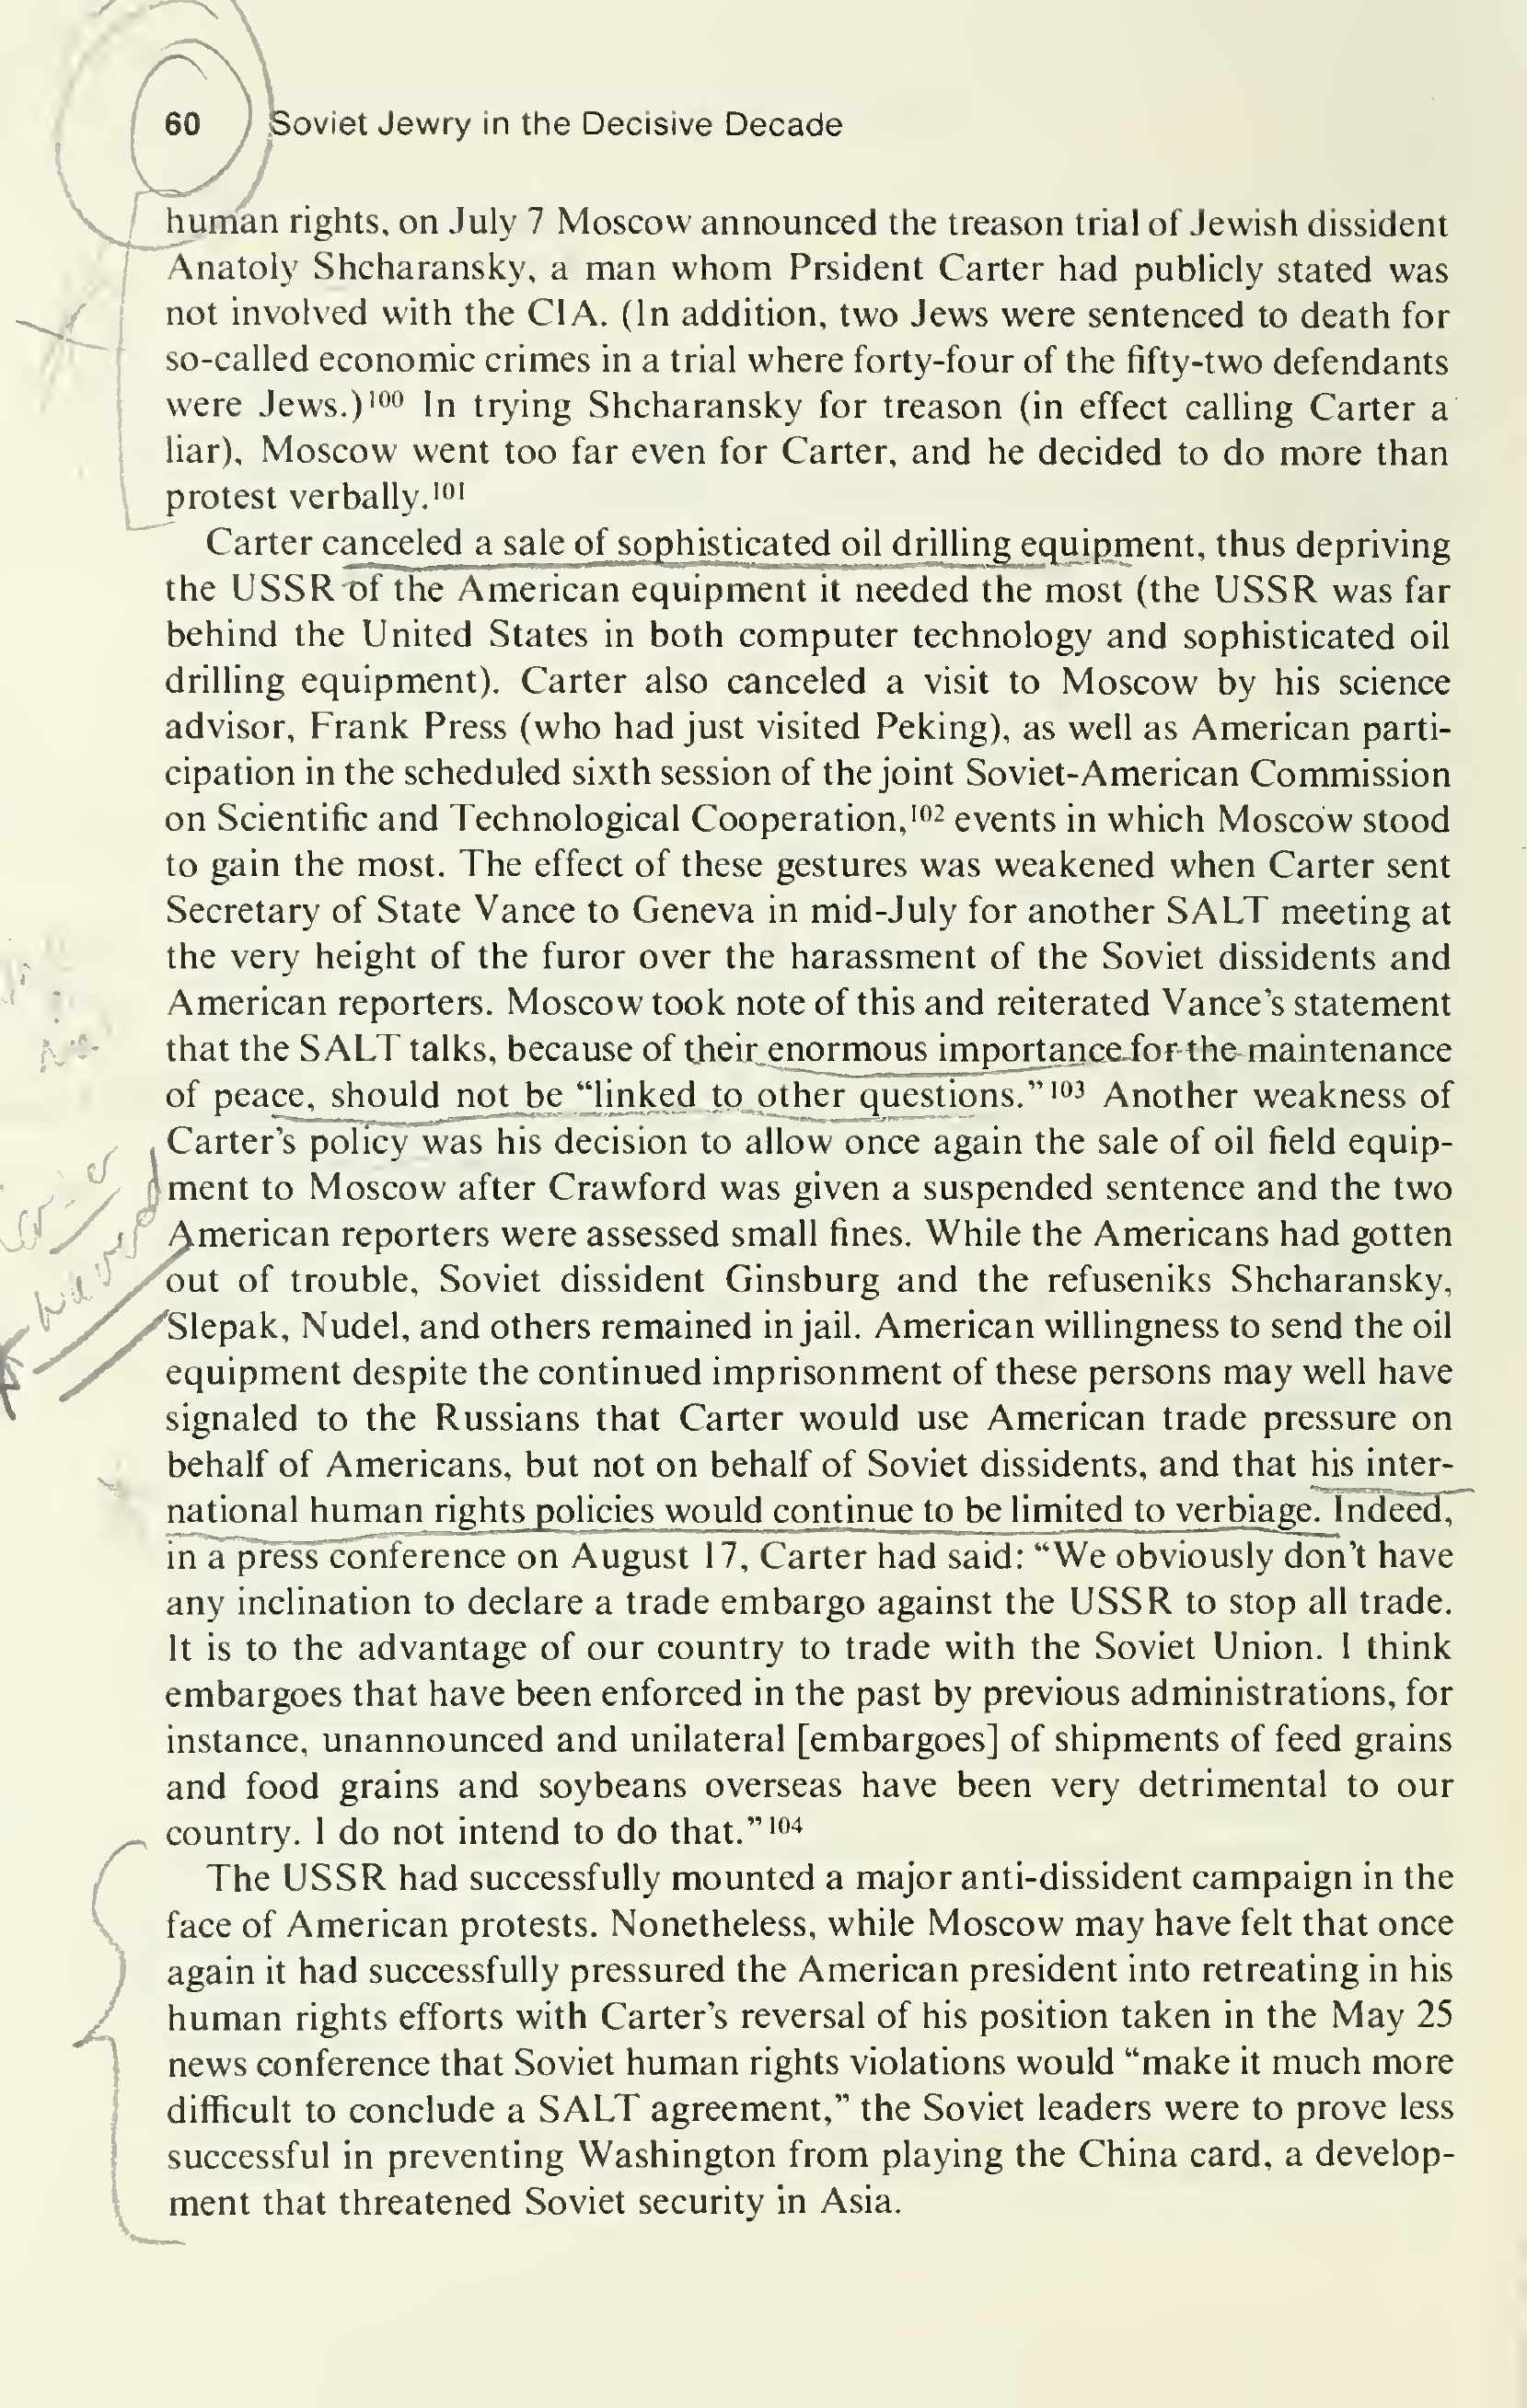 60 Soviet Jewry in the Decisive Decade
human rights, on July 7 Moscow announced the treason trial of Jewish dissident
Anatoly Shcharansky, a man whom Prsident Carter had publicly stated was
not involved with the CIA. (In addition, two Jews were sentenced to death for
so-called economic crimes in a trial where forty-four of the fifty-two defendants
were Jews.)100 In trying Shcharansky for treason (in effect calling Carter a
liar), Moscow went too far even for Carter, and he decided to do more than
protest verbally.101
Carter canceled a sale of sophisticated oil drilling equipment, thus depriving
the USSR of the American equipment it needed the most (the USSR was far
behind the United States in both computer technology and sophisticated oil
drilling equipment). Carter also canceled a visit to Moscow by his science
advisor, Frank Press (who had just visited Peking), as well as American parti-
cipation in the scheduled sixth session of the joint Soviet-American Commission
on Scientific and Technological Cooperation,102 events in which Moscow stood
to gain the most. The effect of these gestures was weakened when Carter sent
Secretary of State Vance to Geneva in mid-July for another SALT meeting at
the very height of the furor over the harassment of the Soviet dissidents and
American reporters. Moscow took note of this and reiterated Vance's statement
that the SALT talks, because of their enormous importance for the maintenance
of peace, should not be “linked to other questions.”103 Another weakness of
Carter's policy was his decision to allow once again the sale of oil field equip-
ment to Moscow after Crawford was given a suspended sentence and the two
American reporters were assessed small fines. While the Americans had gotten
out of trouble, Soviet dissident Ginsburg and the refuseniks Shcharansky,
Slepak, Nudel, and others remained in jail. American willingness to send the oil
equipment despite the continued imprisonment of these persons may well have
signaled to the Russians that Carter would use American trade pressure on
behalf of Americans, but not on behalf of Soviet dissidents, and that his inter-
national human rights policies would continue to be limited to verbiage. Indeed,
in a press conference on August 17, Carter had said: “We obviously don't have
any inclination to declare a trade embargo against the USSR to stop all trade.
It is to the advantage of our country to trade with the Soviet Union. I think
embargoes that have been enforced in the past by previous administrations, for
instance, unannounced and unilateral [embargoes] of shipments of feed grains
and food grains and soybeans overseas have been very detrimental to our
country. I do not intend to do that.”104
The USSR had successfully mounted a major anti-dissident campaign in the
face of American protests. Nonetheless, while Moscow may have felt that once
again it had successfully pressured the American president into retreating in his
human rights efforts with Carter's reversal of his position taken in the May 25
news conference that Soviet human rights violations would “make it much more
difficult to conclude a SALT agreement,” the Soviet leaders were to prove less
successful in preventing Washington from playing the China card, a develop-
ment that threatened Soviet security in Asia.